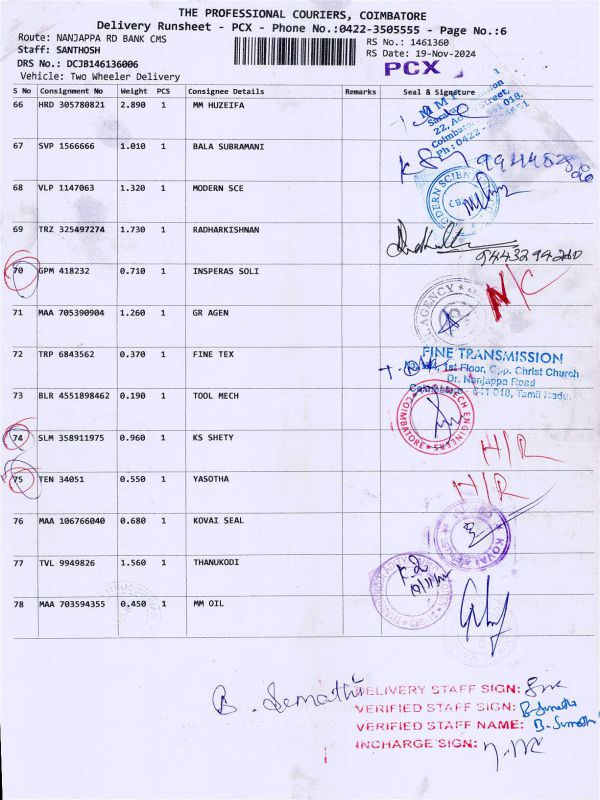 THE PROFESSIONAL COURIERS, COIMBATORE
Delivery Runsheet - PCX - Phone No.:0422-3505555 - Page No.:6
Route: NANJAPPA RD BANK CMS
RS No.: 1461360
Staff: SANTHOSH
RS Date: 19-Nov-2024
DRS No.: DCJB146136006
PCX
Vehicle: Two Wheeler Delivery
S No Consignment No Weight PCS Consignee Details Remarks Seal & Signature
66 HRD 305780821 2.890 1 MM HUZEIFA
67 SVP 1566666 1.010 1 BALA SUBRAMANI
68 VLP 1147063 1.320 1 MODERN SCE
MODERN SCIEN
69 TRZ 325497274 1.730 1 RADHARKISHNAN
9443294260
70 GPM 418232 0.710 1 INSPERAS SOLI
N/C
71 MAA 705390904 1.260 1 GR AGEN
AGENCY
72 TRP 6843562 0.370 1 FINE TEX
FINE TRANSMISSION
1st Floor, Opp. Christ Church
Dr. Nanjappa Road
641 018, Tamil Nadu.
73 BLR 4551898462 0.190 1 TOOL MECH
MECH ENGINEERS
COIMBATORE
74 SLM 358911975 0.960 1 KS SHETY
H/R
75 TEN 34051 0.550 1 YASOTHA
H/R
76 MAA 106766040 0.680 1 KOVAI SEAL
KOVAI
77 TVL 9949826 1.560 1 THANUKODI
78 MAA 703594355 0.450 1 MM OIL
B. Sumathi
DELIVERY STAFF SIGN:
VERIFIED STAFF SIGN: B. Sumathi
VERIFIED STAFF NAME: B. Sumathi
INCHARGE SIGN: